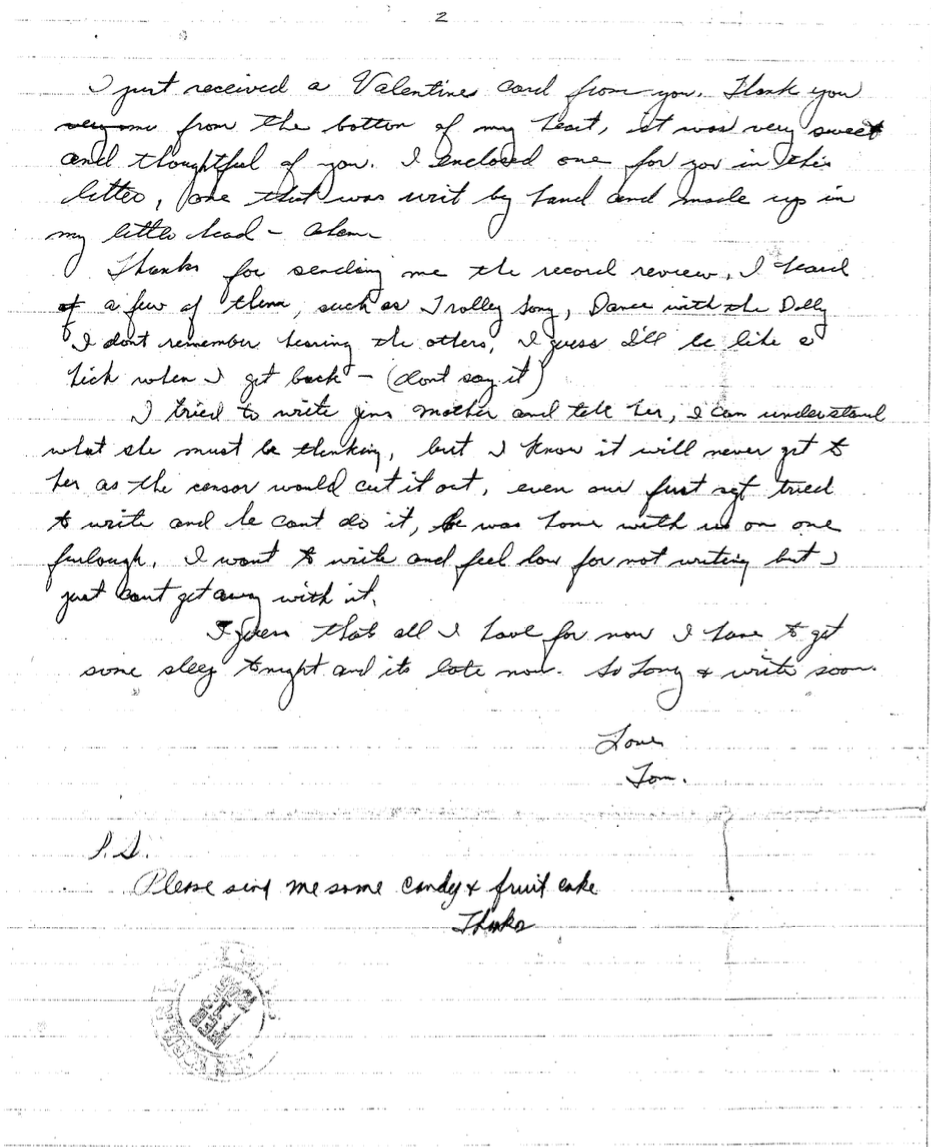 2
I just received a Valentines card from you. Thank you
from the bottom of my heart, it was very sweet
and thoughtful of you. I enclosed one for you in this
letter, one that was writ by hand and made up in
my little head - ahem -
Thanks for sending me the record review, I heard
of a few of them, such as Trolley Song, Dance with the Dolly
I dont remember hearing the others, I guess I'll be like a
hick when I get back - (dont say it)
I tried to write Jims mother and tell her, I can understand
what she must be thinking, but I know it will never get to
her as the censor would cut it out, even our first sgt tried
to write and he cant do it, he was home with us on one
furlough. I want to write and feel low for not writing but I
just cant get away with it.
I guess thats all I have for now I have to get
some sleep tonight and its late now. So Long & write soon.
Love
Tom.
P.S.
Please send me some candy & fruit cake
Thanks